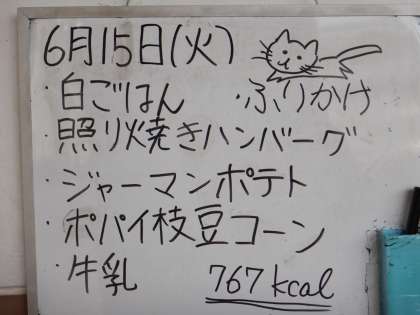 6月15日(火)
・白ごはん ・ふりかけ
・照り焼きハンバーグ
・ジャーマンポテト
・ポパイ枝豆コーン
・牛乳 767kcal